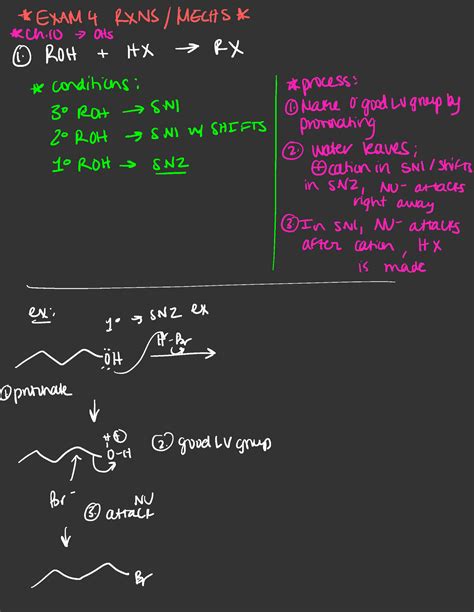 * EXAM 4 RXNS / MECHS *
* Ch.10 → OHs
① ROH + HX → RX
* conditions:
3° ROH → SN1
2° ROH → SN1 w/ SHIFTS
1° ROH → SN2
* process:
① Make a good LV group by
protonating
② Water leaves;
⊕ cation in SN1 / shifts
in SN2, NU- attacks
right away
③ In SN1, NU- attacks
after cation, HX
is made
ex:
1° → SN2 ex
OH
H-Br
① protonate
H ⊕
O-H
② good LV group
Br-
③ NU
attack
Br